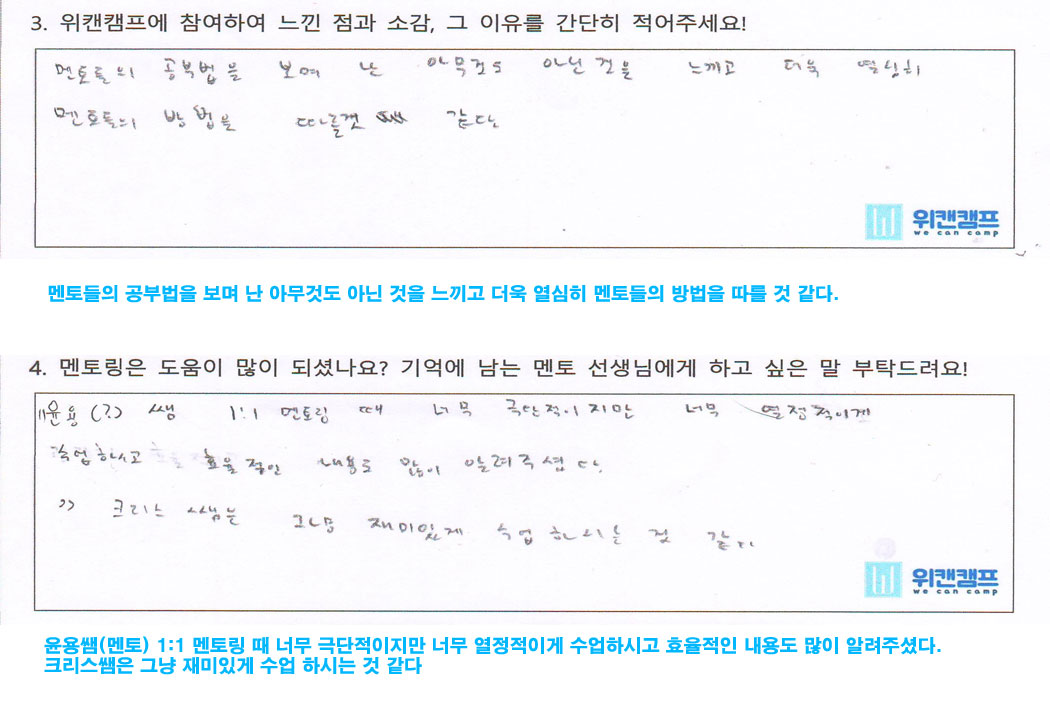 3. 위캔캠프에 참여하여 느낀 점과 소감, 그 이유를 간단히 적어주세요!
멘토들의 공부법을 보며 난 아무것도 아닌 것을 느끼고 더욱 열심히
멘토들의 방법을 따를것 같다.
위캔캠프
we can camp
멘토들의 공부법을 보며 난 아무것도 아닌 것을 느끼고 더욱 열심히 멘토들의 방법을 따를 것 같다.
4. 멘토링은 도움이 많이 되셨나요? 기억에 남는 멘토 선생님에게 하고 싶은 말 부탁드려요!
윤용(?) 쌤 1:1 멘토링 때 너무 극단적이지만 너무 열정적이게
수업하시고 효율적인 내용도 많이 알려주셨다.
크리스 쌤은 그냥 재미있게 수업 하시는 것 같다
위캔캠프
we can camp
윤용쌤(멘토) 1:1 멘토링 때 너무 극단적이지만 너무 열정적이게 수업하시고 효율적인 내용도 많이 알려주셨다.
크리스쌤은 그냥 재미있게 수업 하시는 것 같다